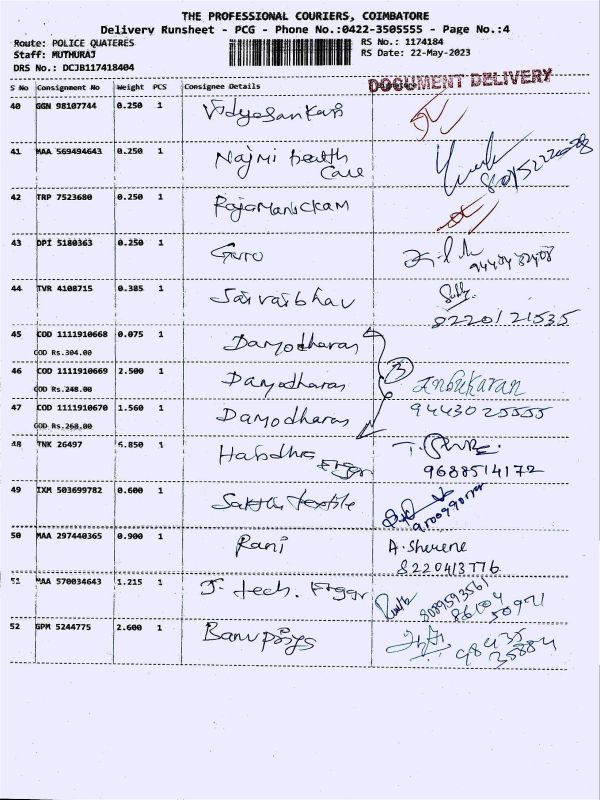 THE PROFESSIONAL COURIERS, COIMBATORE
Delivery Runsheet - PCG - Phone No.:0422-3505555 - Page No.:4
Route: POLICE QUATERES
RS No.: 1174184
Staff: MUTHURAJ
RS Date: 22-May-2023
DRS No.: DCJB117418404
DOCUMENT DELIVERY
S No Consignment No Weight PCS Consignee Details
40 GGN 98107744 0.250 1 Vidyasankari
41 MAA 569494643 0.250 1 Najmi health
Care
42 TRP 7523680 0.250 1 Rajamanickam
43 DPI 5180363 0.250 1 Guru
44 TVR 4108715 0.385 1 Sai vaibhav
8220121535
45 COD 1111910668 0.075 1 Damodharan
COD Rs.304.00
46 COD 1111910669 2.500 1 Damodharan 3 Inbukaran
COD Rs.248.00
47 COD 1111910670 1.560 1 Damodharan 9443025555
COD Rs.268.00
48 TNK 26497 6.850 1
9688514172
49 IXM 503699782 0.600 1 Sakthi textile
50 MAA 297440365 0.900 1 Rani A. Sherene
8220413776
51 MAA 570034643 1.215 1 J. tech. Engg
52 GPM 5244775 2.600 1
98435
35884